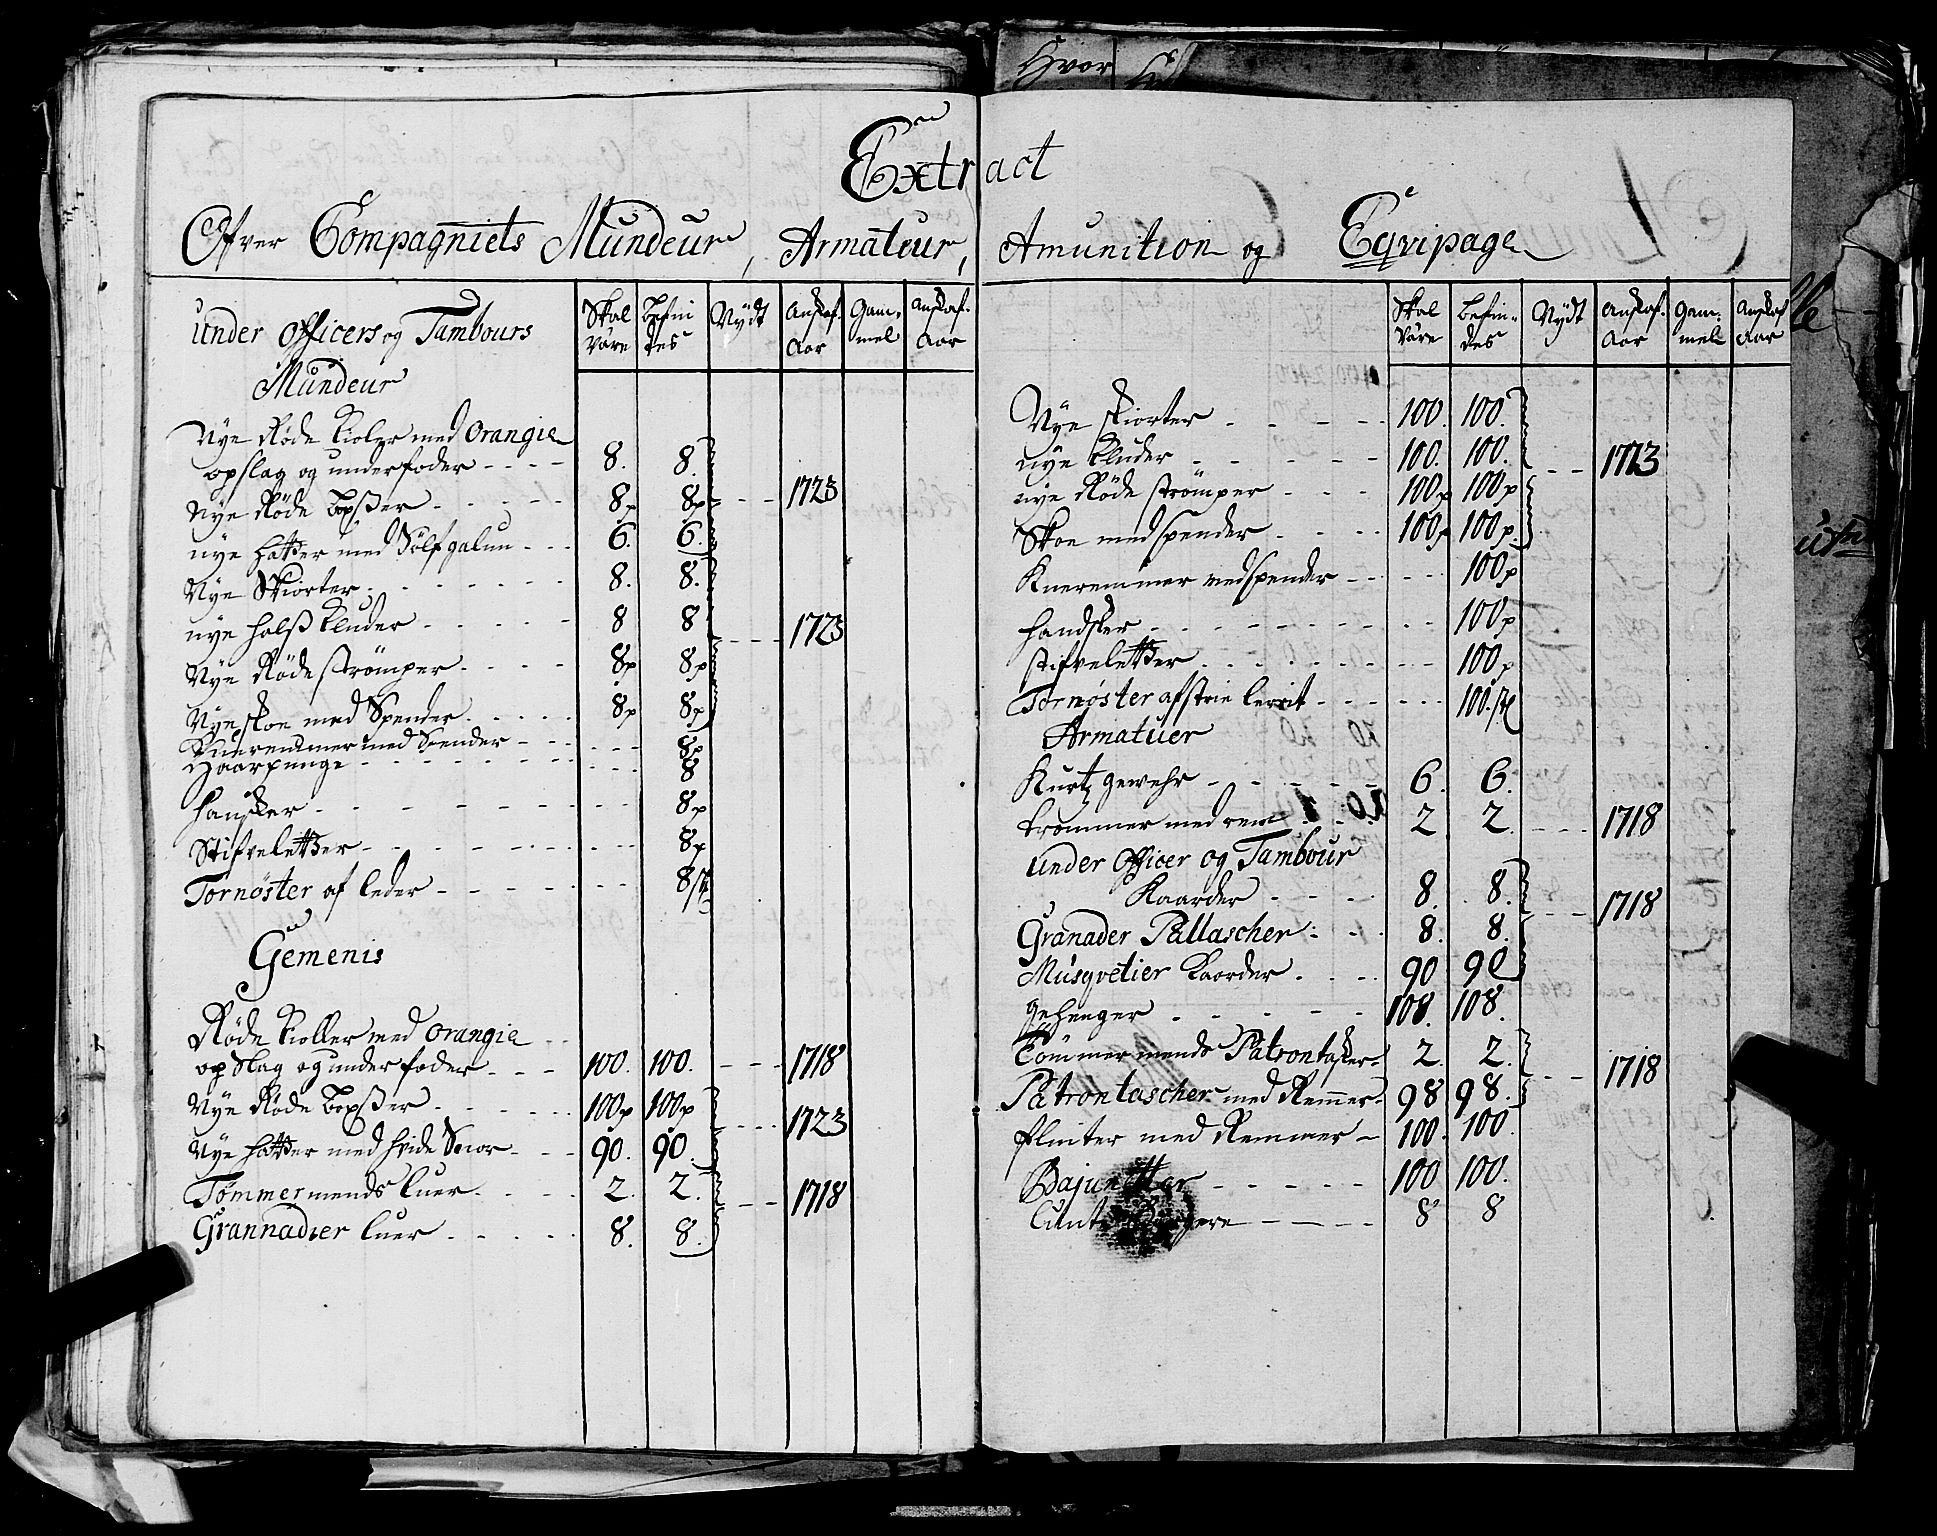 Extract
Ofver Compagniets Mundeur, Armateur, Amunition og Eqvipage
under officers og Tambours
Skal være
befin des
Nÿdt
Anskaf. Aar
Gam- mel
Anskaf. Aar
Mundeur
Nÿe Røde kioler med Orangie
opslag og underfoder - - - - 8. 8.
Nÿe Røde boxser - - - - 8p 8p - - - 1723
nÿe hatter med Sølf galun - - - 6. 6.
Nÿe Skiorter - - - - 8. 8.
nÿe halß kluder - - - - 8 8 - - - 1723
Nÿe Røde strømper - - - - 8p 8p
Nÿe skoe med Spender - - - - 8p 8p
Knæremmer med Spender - - - - 8p
Haarpunge - - - - 8
Handsker - - - - 8p
Stifveletter - - - - 8p
Tornøster af leder - - - - 8
Gemenis
Røde kioller med orangie
opslag og underfoder - - - 100. 100. - - - 1718
Nÿe Røde boxser - - - - 100p 100p - - - 1723
Nÿe hatter med hvide Snor - - - 90. 90.
Tømmermends luer - - - - 2. 2. - - - 1718
Grannadier luer - - - - 8. 8.
Hvor
Skal være
befin- des
Nÿdt
Anskaf. Aar
Gam- mel
Anskaf Aar
Nÿe skiorter - - - - 100. 100.
nÿe kluder - - - - 100. 100. - - - 1723
nÿe Røde strømper - - - 100p 100p
Skoe med spender - - - 100p 100p
Knæremmer med spender - - - - 100p
handsker - - - - 100p
stifveletter - - - - 100p
Tornøster af strie lerrit - - - - 100.
Armatuer
Kurtz gewehr - - - - 6. 6.
trommer med rem - - - 2 2. - - - 1718
under officer og Tambour
Kaarder - - - - 8. 8. - - - 1718
Granader Pallascher - - 8. 8.
Musqvetier Kaarder - - - 90 90
gehenger - - - - 108. 108.
Tömmermends Patrontasker - 2. 2. - - - 1718
Patrontascher med Remmer - 98 98.
flinter med Remmer - 100. 100.
Bajunetter - - - - 100 100.
- - - - 8 8